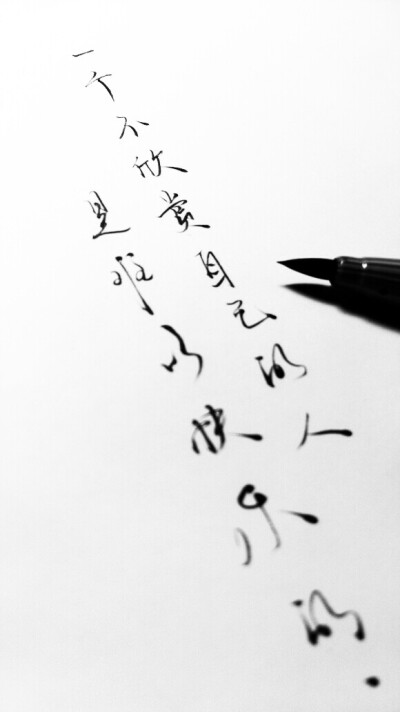 一个不欣赏自己的人
是难以快乐的.